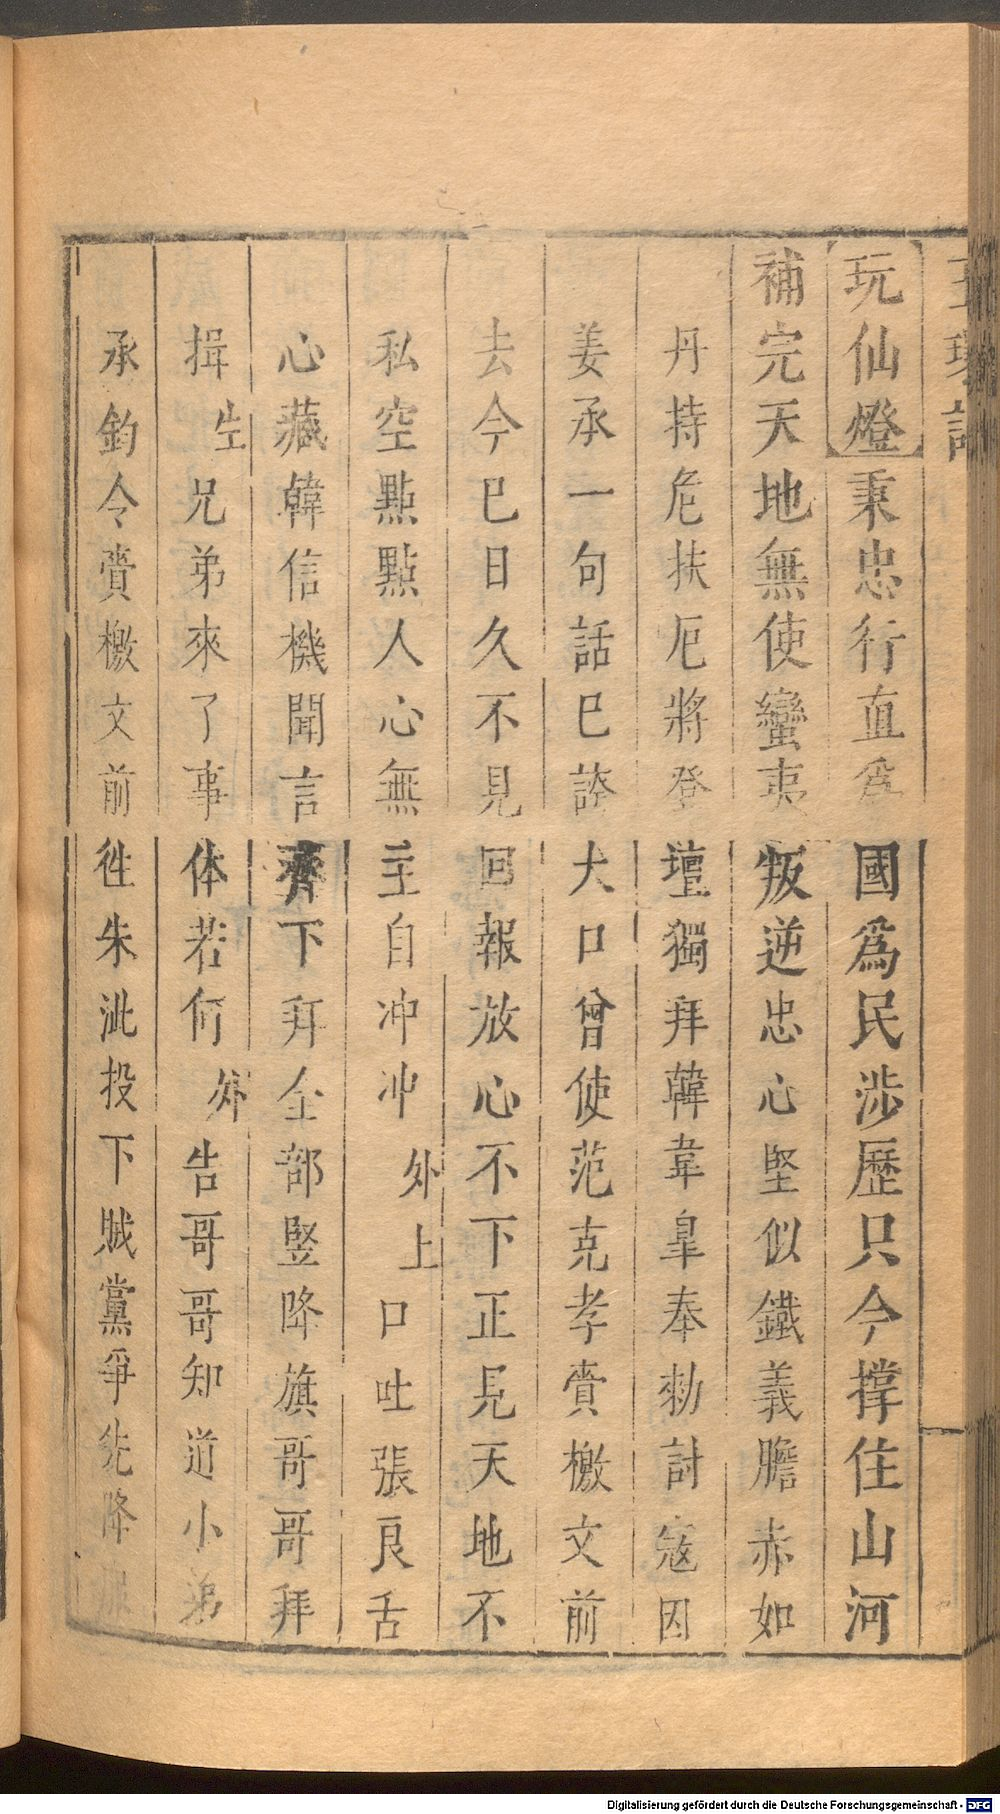 玉環記
玩仙燈秉忠行直爲國爲民涉歷只今撑住山河
補完天地無使蠻夷叛逆忠心堅似鐵義膽赤如
丹持危扶厄將登壇獨拜韓韋臯奉勑討寇因
姜承一句話已誇大口曾使范克孝賫檄文前
去今已日久不見回報放心不下正見天地不
私空點點人心無主自冲冲外上口吐張良舌
心藏韓信機聞言齊下拜全部竪降旗哥哥拜
揖生兄弟來了事体若何外告哥哥知道小弟
承鈞令賫檄文前徃朱泚投下賊黨爭先降
Digitalisierung gefördert durch die Deutsche Forschungsgemeinschaft - DFG